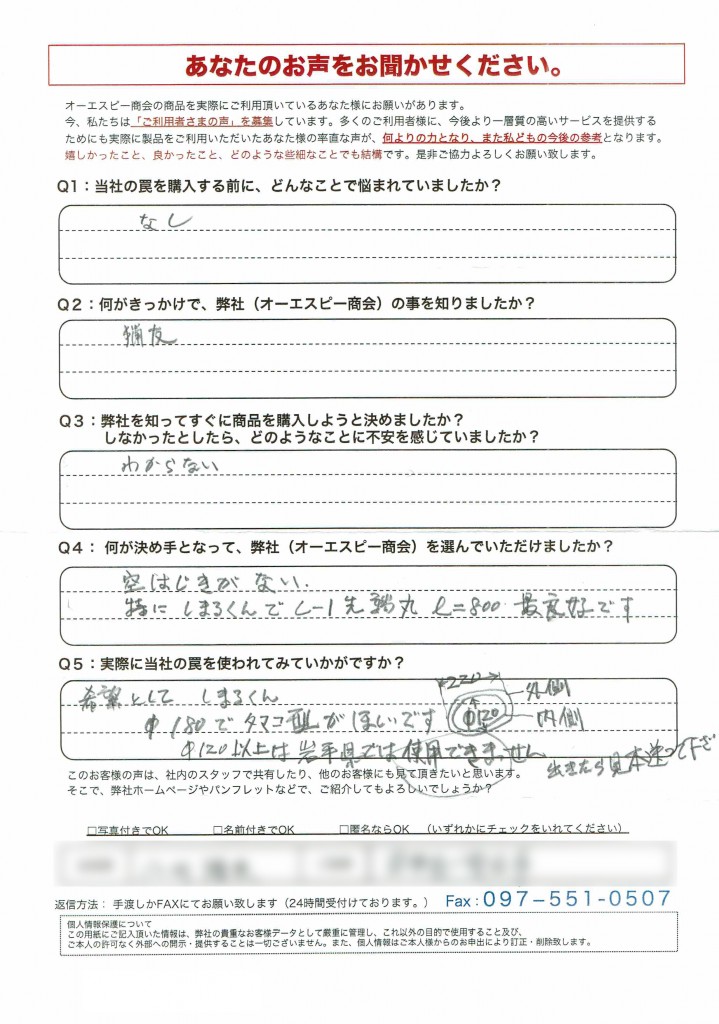 あなたのお声をお聞かせください。
オーエスピー商会の商品を実際にご利用頂いているあなた様にお願いがあります。
今、私たちは「ご利用者さまの声」を募集しています。多くのご利用者様に、今後より一層質の高いサービスを提供する
ためにも実際に製品をご利用いただいたあなた様の率直な声が、何よりの力となり、また私どもの今後の参考となります。
嬉しかったこと、良かったこと、どのような些細なことでも結構です。是非ご協力よろしくお願い致します。
Q1：当社の罠を購入する前に、どんなことで悩まれていましたか？
なし
Q2：何がきっかけで、弊社（オーエスピー商会）の事を知りましたか？
猟友
Q3：弊社を知ってすぐに商品を購入しようと決めましたか？
しなかったとしたら、どのようなことに不安を感じていましたか？
わからない
Q4： 何が決め手となって、弊社（オーエスピー商会）を選んでいただけましたか？
空はじきがない.
特に しまるくんで L-1 先端丸 ℓ=800 最良好です
Q5：実際に当社の罠を使われてみていかがですか？
希望として しまるくん
220
外側
φ180でタマコ型がほしいです φ120 内側
φ120以上は岩手県では使用できません
出きたら見本送って下さ
このお客様の声は、社内のスタッフで共有したり、他のお客様にも見て頂きたいと思います。
そこで、弊社ホームページやパンフレットなどで、ご紹介してもよろしいでしょうか？
□写真付きでOK □名前付きでOK □匿名ならOK （いずれかにチェックをいれてください）
返信方法： 手渡しかFAXにてお願い致します（24時間受付けております。） Fax：097-551-0507
個人情報保護について
この用紙にご記入頂いた情報は、弊社の貴重なお客様データとして厳重に管理し、これ以外の目的で使用すること及び、
ご本人の許可なく外部への開示・提供することは一切ございません。また、個人情報はご本人様からのお申出により訂正・削除致します。